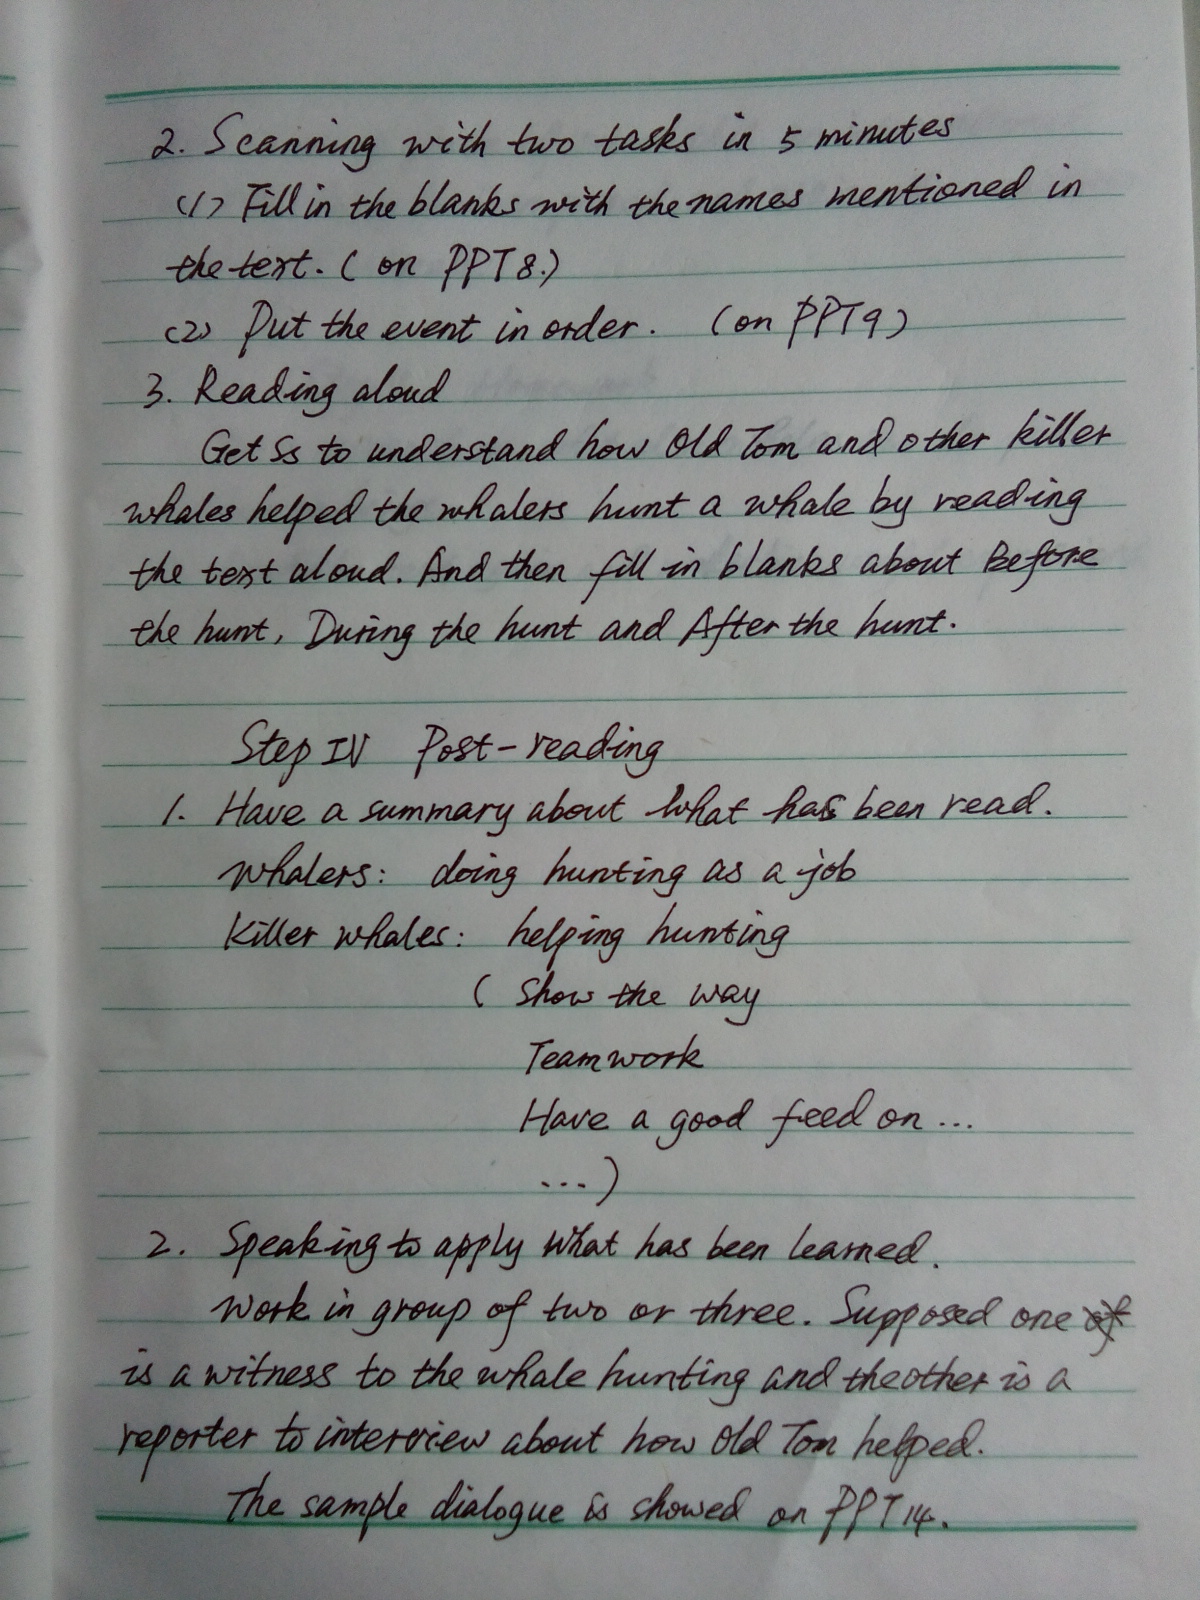 2. Scanning with two tasks in 5 minutes
(1) Fill in the blanks with the names mentioned in
the text. ( on PPT8.)
(2) Put the event in order. (on PPT9)
3. Reading aloud
Get Ss to understand how Old Tom and other killer
whales helped the whalers hunt a whale by reading
the text aloud. And then fill in blanks about Before
the hunt, During the hunt and After the hunt.
Step IV Post-reading
1. Have a summary about what has been read.
Whalers: doing hunting as a job
Killer whales: helping hunting
( Show the way
Teamwork
Have a good feed on ...
... )
2. Speaking to apply what has been learned.
Work in group of two or three. Supposed one
is a witness to the whale hunting and the other is a
reporter to interview about how Old Tom helped.
The sample dialogue is showed on PPT14.